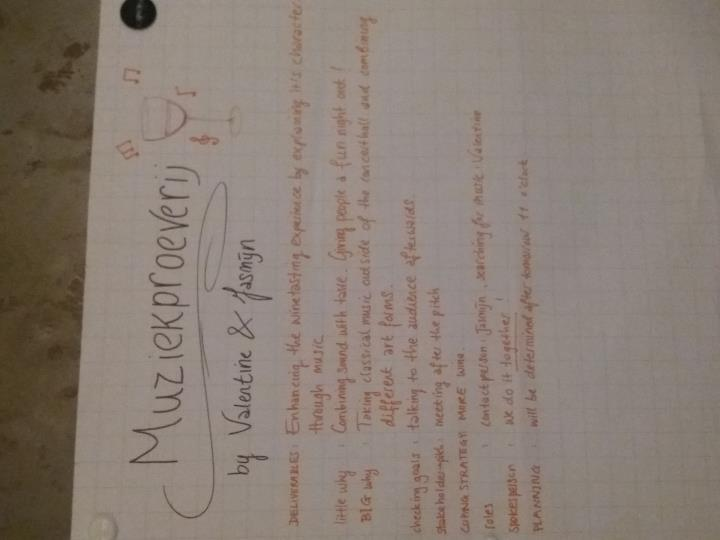 Muziekproeverij
by Valentine & Jasmijn
DELIVERABLES: Enhancing the winetasting experience by explaining it's character
through music
little why : Combining sound with taste. Giving people a fun night out!
BIG why : Taking classical music outside of the concerthall and combining
different art forms.
checking goals : talking to the audience afterwards.
stakeholder-pitch : meeting after the pitch
COPING STRATEGY: MORE wine.
roles : contactperson: Jasmijn, searching for music: Valentine
Spokesperson : we do it together!
PLANNING : will be determined after tomorrow 11 o'clock